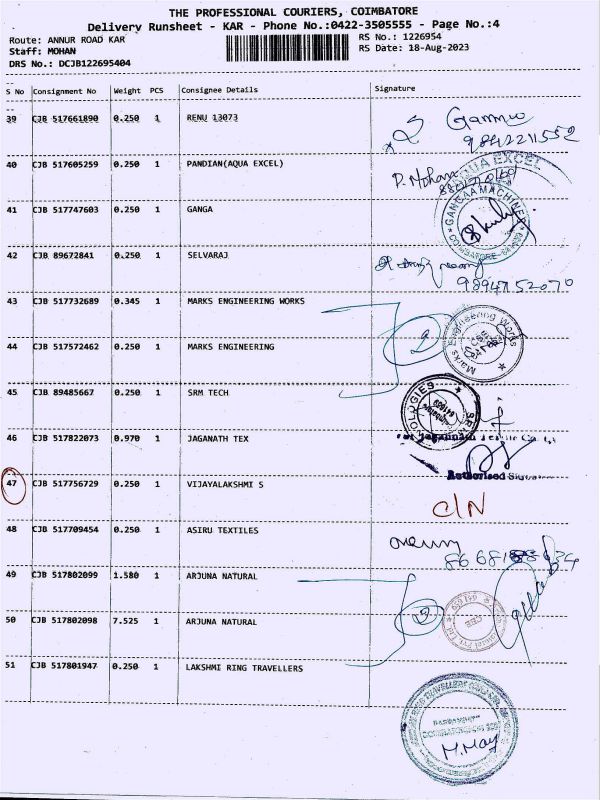 THE PROFESSIONAL COURIERS, COIMBATORE
Delivery Runsheet - KAR - Phone No.:0422-3505555 - Page No.:4
Route: ANNUR ROAD KAR RS No.: 1226954
Staff: MOHAN RS Date: 18-Aug-2023
DRS No.: DCJB122695404
S No Consignment No Weight PCS Consignee Details Signature
39 CJB 517661890 0.250 1 RENU 13073
9842211552
40 CJB 517605259 0.250 1 PANDIAN(AQUA EXCEL) P. Mohan
AQUA EXCEL
41 CJB 517747603 0.250 1 GANGA
42 CJB 89672841 0.250 1 SELVARAJ
9894752070
43 CJB 517732689 0.345 1 MARKS ENGINEERING WORKS
Marks Engineering Works
44 CJB 517572462 0.250 1 MARKS ENGINEERING 2
45 CJB 89485667 0.250 1 SRM TECH
46 CJB 517822073 0.970 1 JAGANATH TEX
Authorised
47 CJB 517756729 0.250 1 VIJAYALAKSHMI S C/N
48 CJB 517709454 0.250 1 ASIRU TEXTILES
49 CJB 517802099 1.580 1 ARJUNA NATURAL
50 CJB 517802098 7.525 1 ARJUNA NATURAL 2
51 CJB 517801947 0.250 1 LAKSHMI RING TRAVELLERS